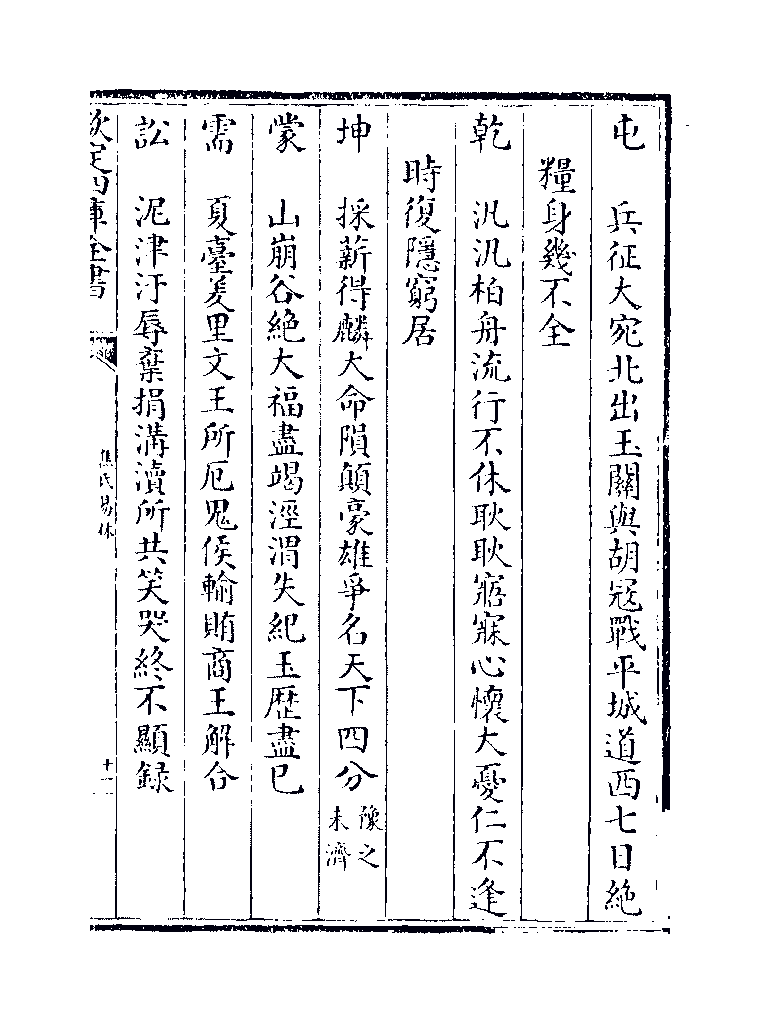 屯　兵征大宛北出玉關與胡冦戰平城道西七日絶
糧身幾不全
乾　汎汎柏舟流行不休耿耿寤寐心懷大憂仁不逢
時復隱窮居
坤　採薪得麟大命隕顛豪雄爭名天下四分豫之未濟
蒙　山崩谷絶大福盡竭涇渭失紀玉歴盡已
需　夏臺羑里文王所厄鬼侯輸賄商王解合
訟　泥津汙辱棄捐溝瀆所共笑哭終不顯録
欽定四庫全書
焦氏易林